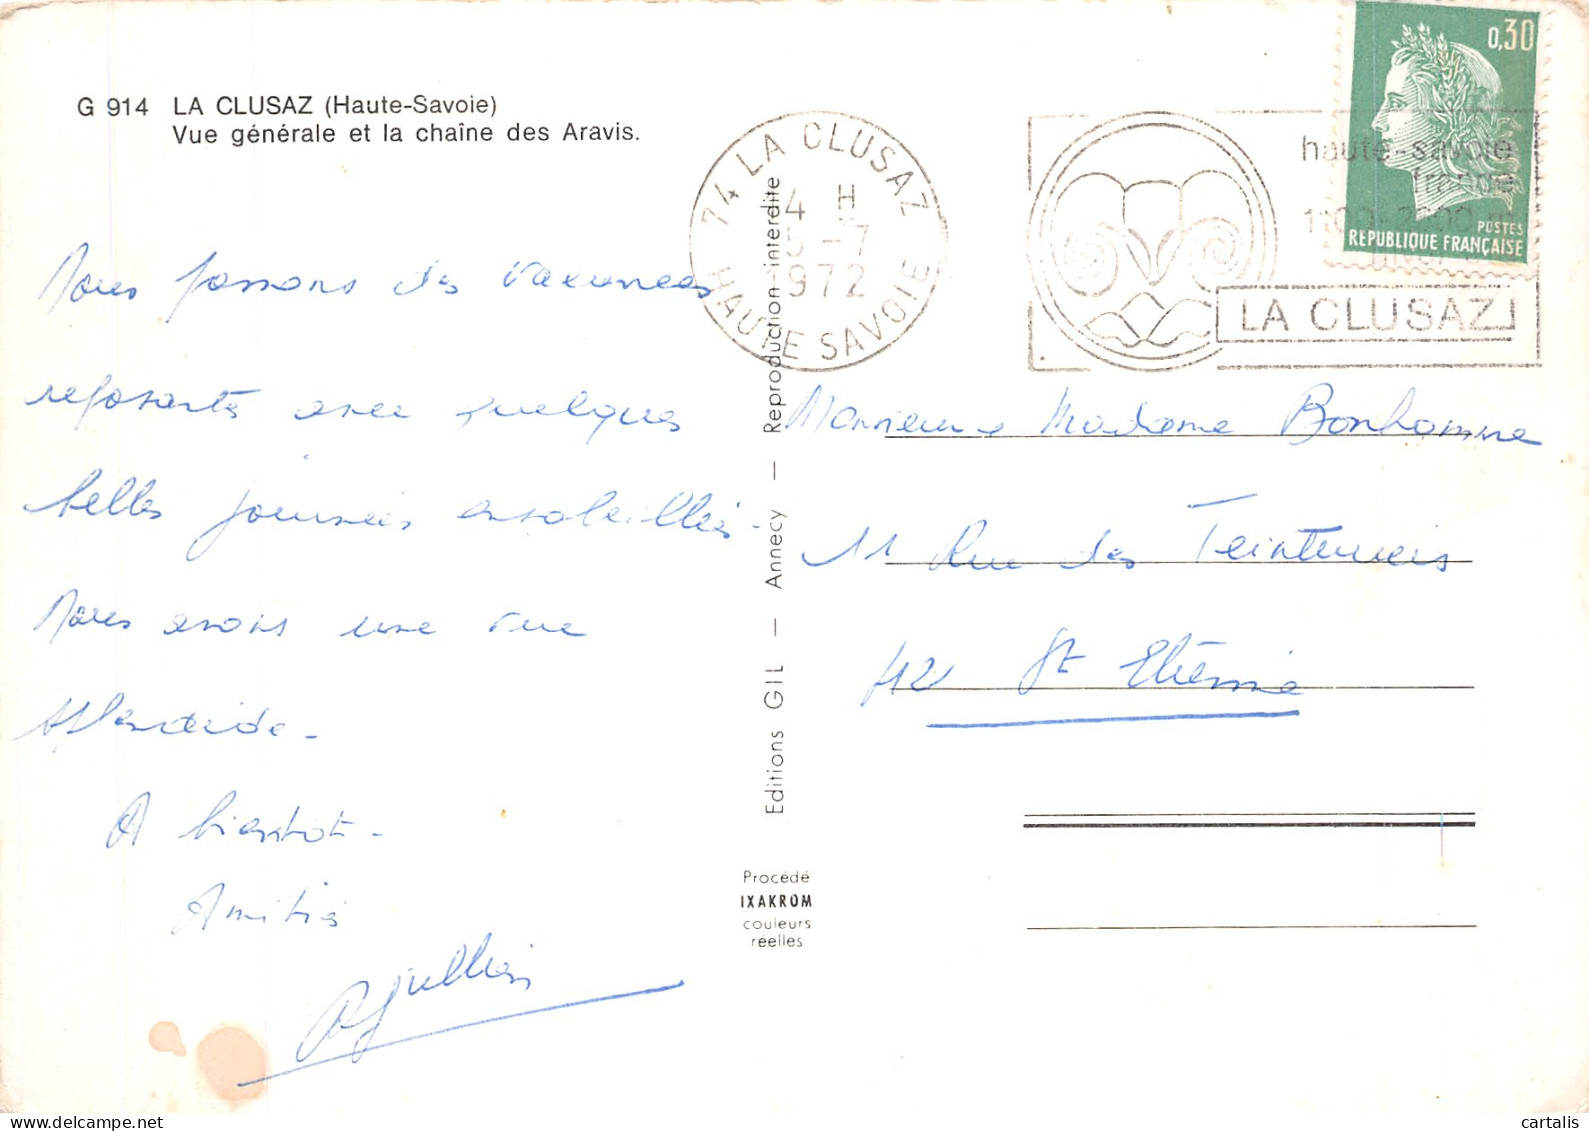 G 914 LA CLUSAZ (Haute-Savoie)
Vue générale et la chaîne des Aravis.
Nous passons des vacances
reposants avec quelques
belles journées ensoleillées.
Nous avons une vue
splendide.
A bientôt.
Amitiés
Jullien
74 LA CLUSAZ
4 H
5-7
1972
HAUTE SAVOIE
haute-savoie
france
LA CLUSAZ
0,30
POSTES
REPUBLIQUE FRANÇAISE
Editions GIL — Annecy — Reproduction interdite
Procédé
IXAKROM
couleurs
réelles
Monsieur Madame Bonhomme
11 Rue des Teinturiers
42 St Etienne
cartalis